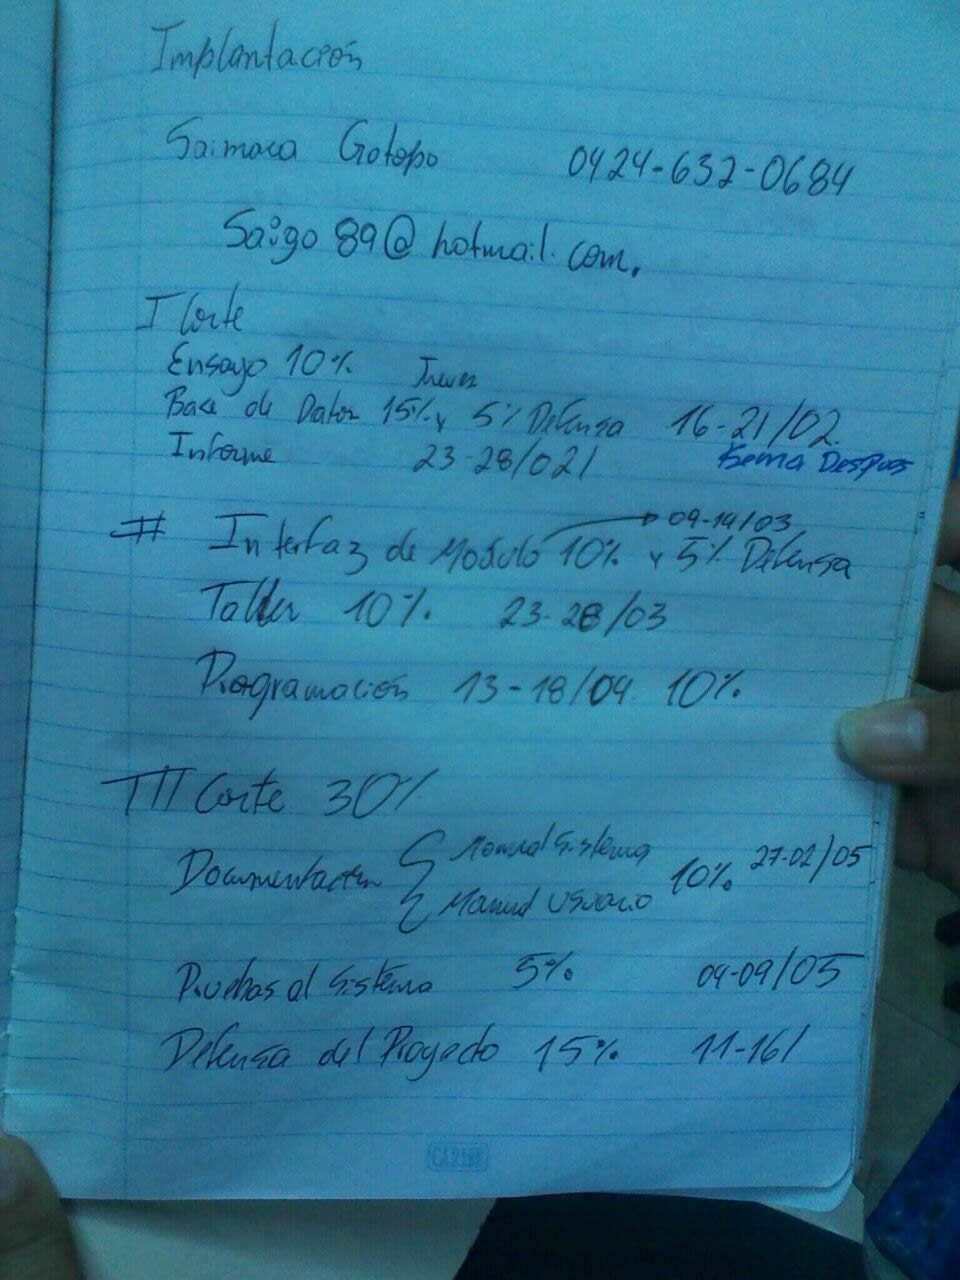 Implantación
Saimara Gotopo 0424-632-0684
Saigo89@hotmail.com.
I Corte
Ensayo 10% Jueves
Base de Datos 15% y 5% Defensa 16-21/02
Informe 23-28/02/
Despues
09-14/03
# Interfaz de Modulo 10% y 5% Defensa
Taller 10% 23-28/03
Programación 13-18/04 10%
III Corte 30%
Documentación { Manual Sistema 10% 27-02/05
Manual Usuario
Pruebas al Sistema 5% 04-09/05
Defensa del Proyecto 15% 11-16/
CARIBE